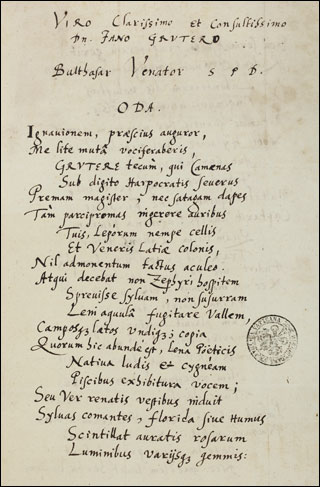 Viro Clarissimo et Consultissimo
Dn. JANO GRUTERO
Balthasar Venator S P D.
ODA.
Ignavionem, præscius auguror,
Me lite mutâ vociferaberis,
GRUTERE tecum, qui Camœnas
Sub digito Harpocratis severus
Premam magister; nec satagam dapes
Tam parcipromas ingerere auribus
Tuis, Leporum nempe cellis
Et Veneris Latiæ colonis,
Nil admonentum tactus aculeo.
Atqui decebat non Zephyri hospitem
Sprevisse sylvam, non susurram
Leni aquulâ fugitare Vallem,
Camposqꝫ lætos undiqꝫ; copia
Quorum hic abunde est, Lena Pöeticis
Nativa ludis et cygnéam
Piscibus exhibitura vocem;
Seu Ver renatis vestibus induit
Sylvas comantes, florida sive Humus
Scintillat auratis rosarum
Luminibus varijsqꝫ gemmis: